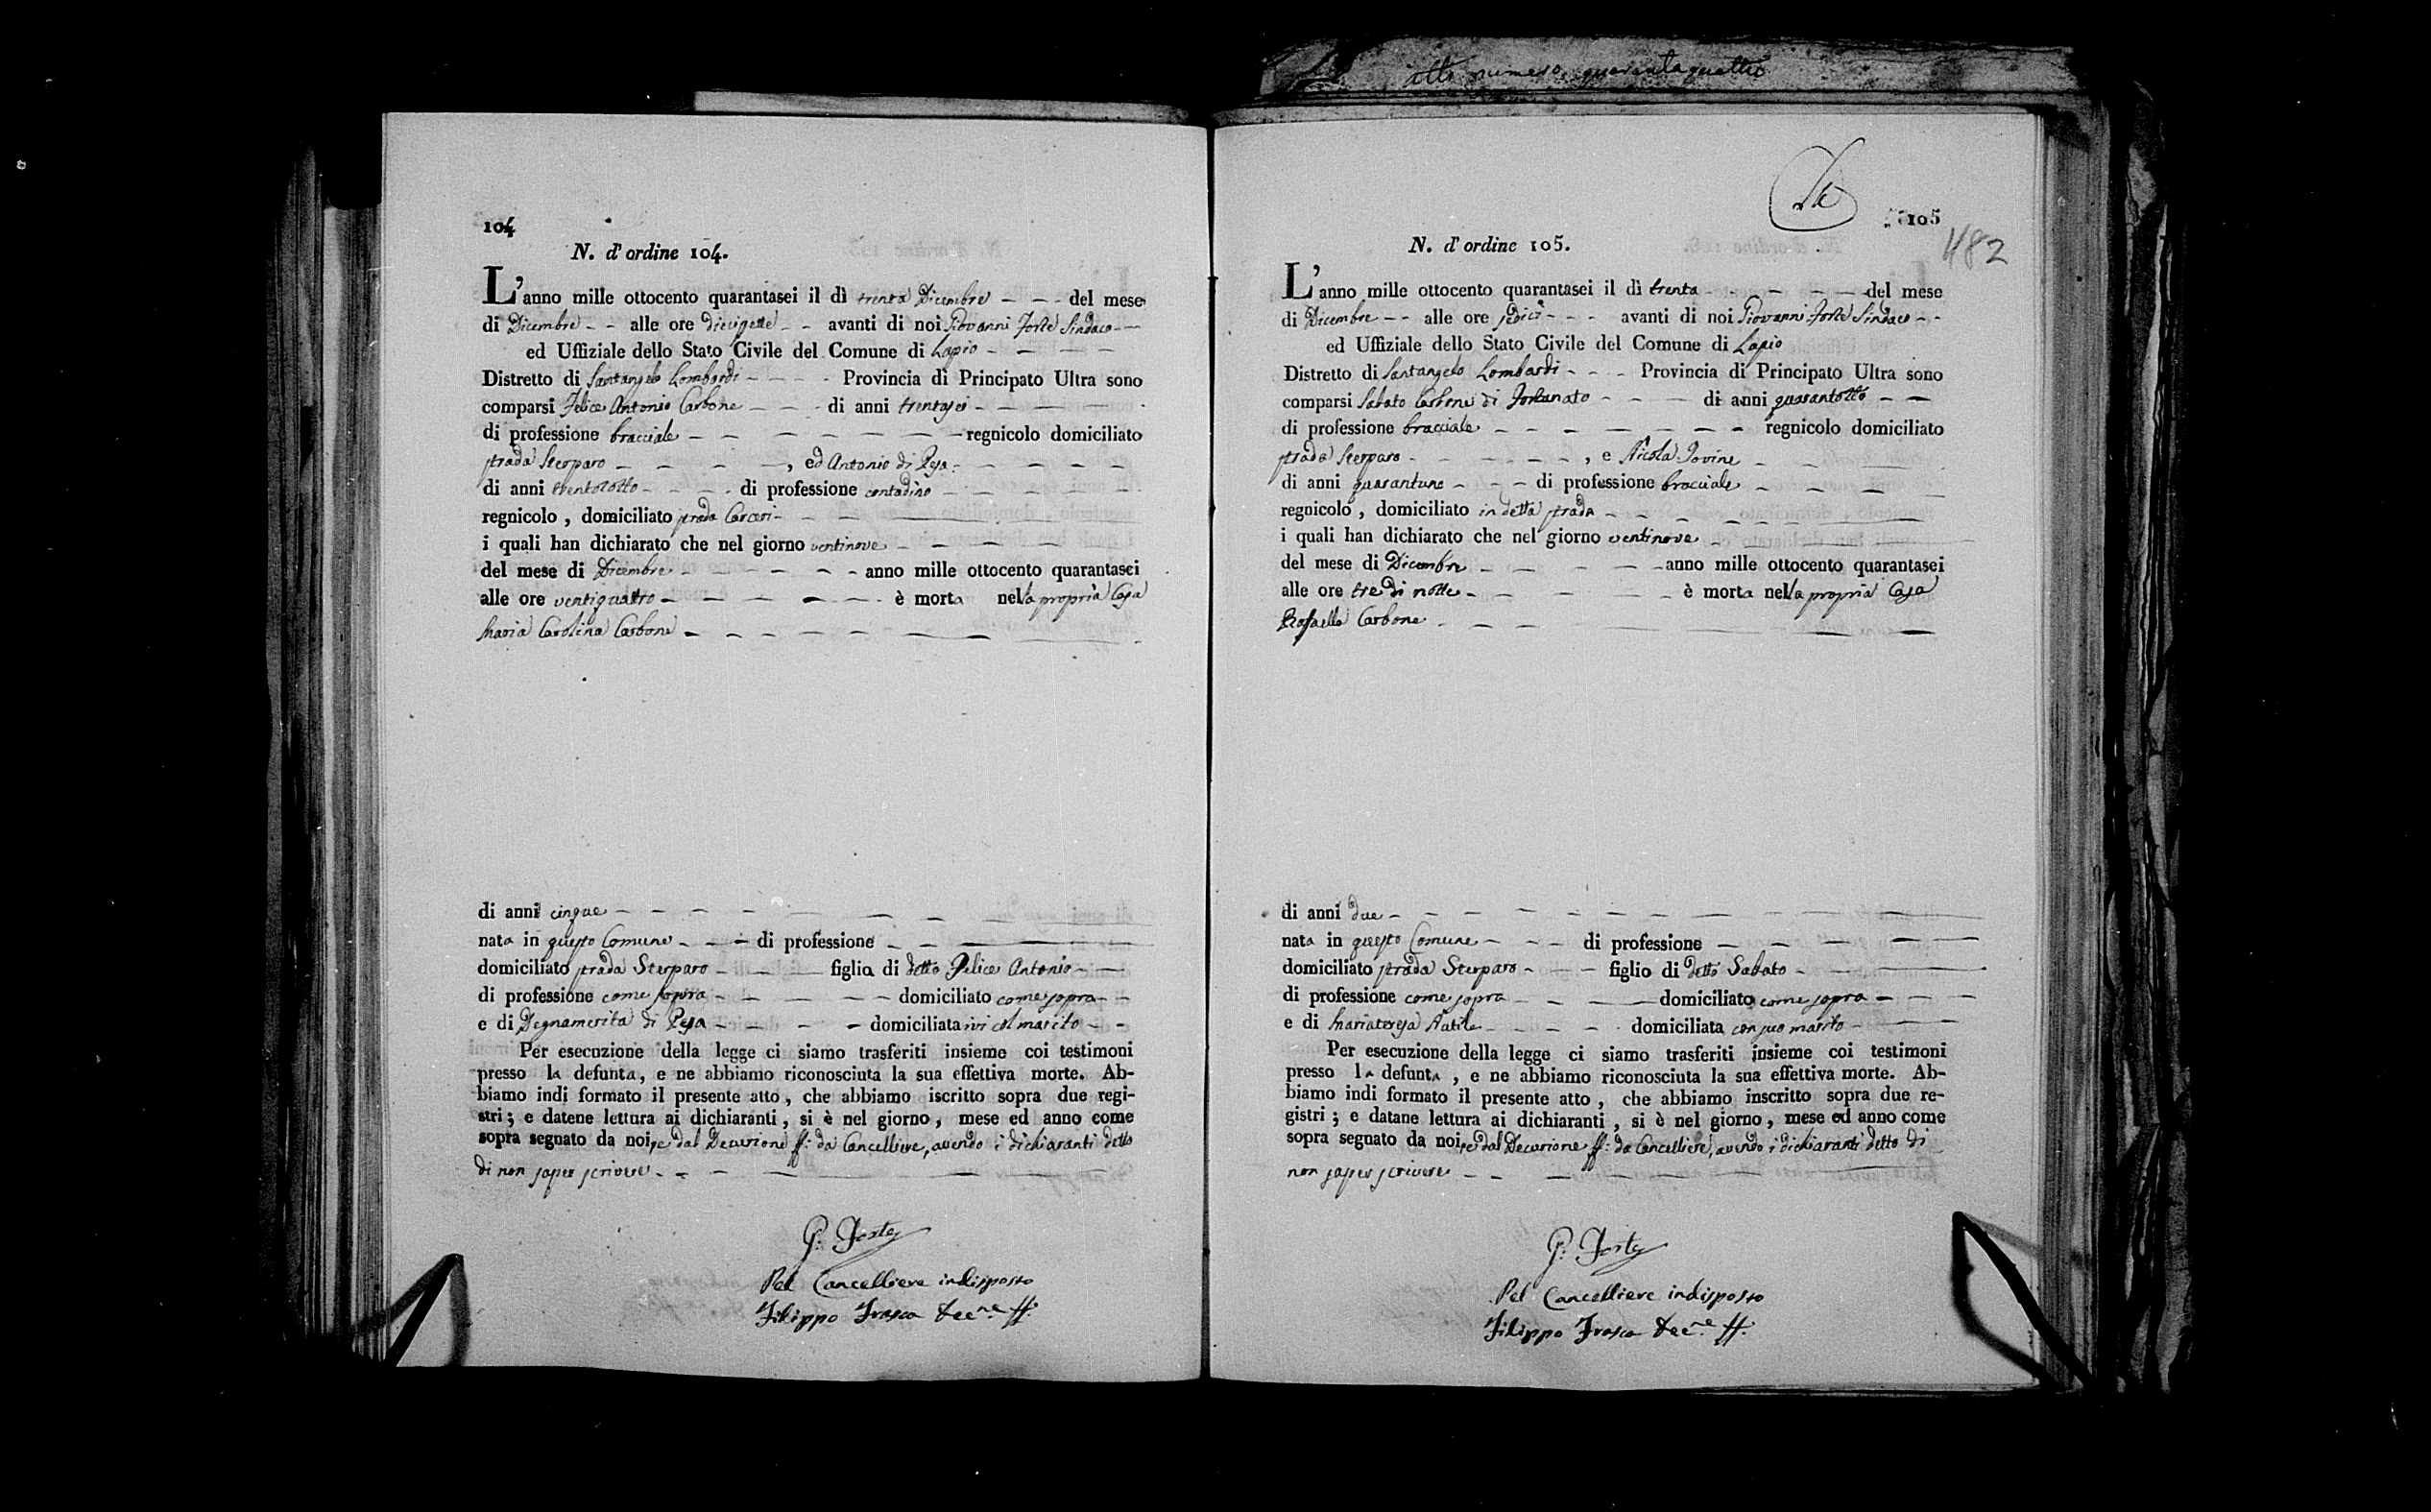 atto numero quarantaquattro
104
N. d'ordine 104.
L'anno mille ottocento quarantasei il dì trenta Dicembre - - - del mese
di Dicembre - - alle ore diecisette - - avanti di noi Giovanni Forte Sindaco - -
ed Uffiziale dello Stato Civile del Comune di Lapio - - - -
Distretto di Santangelo Lombardi - - - - Provincia di Principato Ultra sono
comparsi Felice Antonio Carbone - - - di anni trentasei - - - -
di professione bracciale - - - - - - - regnicolo domiciliato
strada Sterparo - - - -, ed Antonio di Pesa - - - - -
di anni trentotto - - - - di professione contadino - - - - -
regnicolo, domiciliato strada Carceri - - - - -
i quali han dichiarato che nel giorno ventinove - - - - -
del mese di Dicembre - - - - - anno mille ottocento quarantasei
alle ore ventiquattro - - - - - è morta nella propria Casa
Maria Carolina Carbone - - - - - - - - -
di anni cinque - - - - - - - - -
nata in questo Comune - - - di professione - - - - -
domiciliato strada Sterparo - - - figlia di detto Felice Antonio - -
di professione come sopra - - - - - domiciliato come sopra - -
e di Degnamerita di Pesa - - - - domiciliata ivi col marito - -
Per esecuzione della legge ci siamo trasferiti insieme coi testimoni
presso la defunta, e ne abbiamo riconosciuta la sua effettiva morte. Ab-
biamo indi formato il presente atto, che abbiamo iscritto sopra due regi-
stri; e datene lettura ai dichiaranti, si è nel giorno, mese ed anno come
sopra segnato da noi, e dal Decurione ff: da Cancelliere, avendo i dichiaranti detto
di non saper scrivere - - - - - -
G. Forte
Pel Cancelliere indisposto
Filippo Frasca Dec.ne ff.
105
482
N. d'ordine 105.
L'anno mille ottocento quarantasei il dì trenta - - - - - del mese
di Dicembre - - alle ore sedici - - - avanti di noi Giovanni Forte Sindaco - -
ed Uffiziale dello Stato Civile del Comune di Lapio
Distretto di Santangelo Lombardi - - - Provincia di Principato Ultra sono
comparsi Sabato Carbone di Fortunato - - - di anni quarantotto - -
di professione bracciale - - - - - - - regnicolo domiciliato
strada Sterparo - - - - - -, e Nicola Iovine - - - -
di anni quarantuno - - - di professione bracciale - - - -
regnicolo, domiciliato in detta strada - - - - - -
i quali han dichiarato che nel giorno ventinove - - - - -
del mese di Dicembre - - - - - anno mille ottocento quarantasei
alle ore tre di notte - - - - è morta nella propria Casa
Rafaella Carbone - - - - - - -
di anni due - - - - - - - - - -
nata in questo Comune - - - di professione - - - - -
domiciliato strada Sterparo - - - figlio di detto Sabato - - -
di professione come sopra - - - - domiciliato come sopra - - -
e di Mariateresa Autile - - - - - domiciliata con suo marito - - -
Per esecuzione della legge ci siamo trasferiti insieme coi testimoni
presso la defunta, e ne abbiamo riconosciuta la sua effettiva morte. Ab-
biamo indi formato il presente atto, che abbiamo inscritto sopra due re-
gistri; e datane lettura ai dichiaranti, si è nel giorno, mese ed anno come
sopra segnato da noi, e dal Decurione ff: da Cancelliere, avendo i dichiaranti detto di
non saper scrivere - - - - - -
G. Forte
Pel Cancelliere indisposto
Filippo Frasca Dec.ne ff.